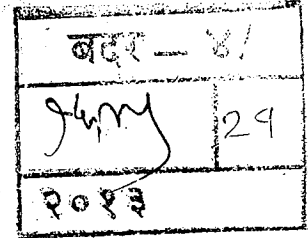 बदर — ४/
29
२०१३